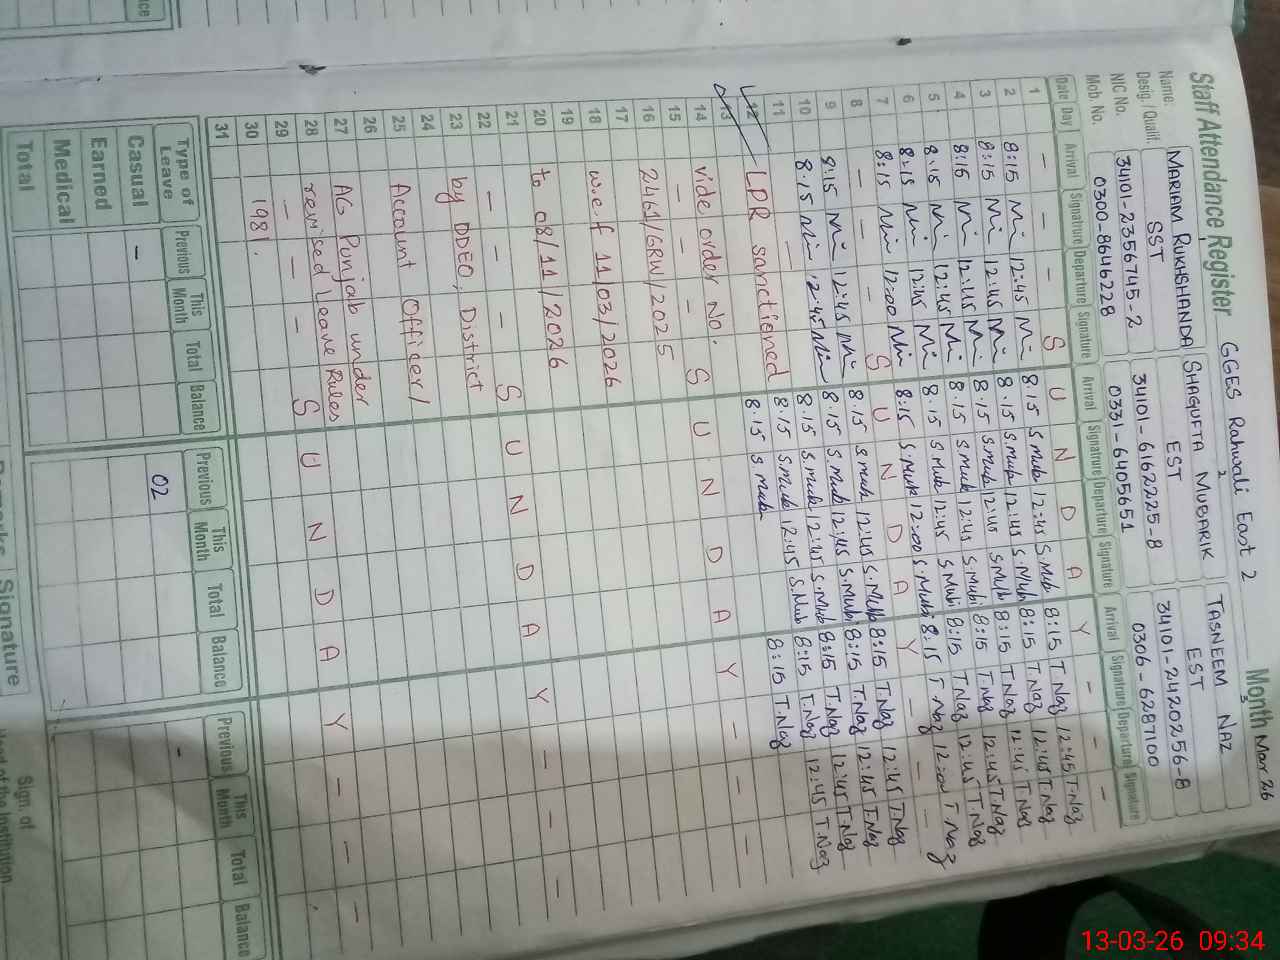 Staff Attendance Register GGES Rahwali East 2 Month Mar 26
Name: MARIAM RUKHSHANDA SHAGUFTA MUBARIK TASNEEM NAZ
Desig. / Qualif. SST EST EST
NIC No. 34101-2356745-2 34101-6162225-8 34101-2420256-8
Mob. No. 0300-8646228 0331-6405651 0306-6287100
Date Day Arrival Signature Departure Signature Arrival Signatrure Departure Signature Arrival Signatrure Departure Signature
1 - - - S U N D A Y - - -
2 8:15 12:45 8:15 S.Mub 12:45 S.Mub 8:15 T.Naz 12:45 T.Naz
3 8:15 12:45 8:15 S.Mub 12:45 S.Mub 8:15 T.Naz 12:45 T.Naz
4 8:15 12:45 8:15 S.Mub 12:45 S.Mub 8:15 T.Naz 12:45 T.Naz
5 8:15 12:45 8:15 S.Mub 12:45 S.Mub 8:15 T.Naz 12:45 T.Naz
6 8:15 12:45 8:15 S.Mub 12:45 S.Mub 8:15 T.Naz 12:45 T.Naz
7 8:15 12:00 8:15 S.Mub 12:00 S.Mub 8:15 T.Naz 12:00 T.Naz
8 - - - S U N D A Y - - -
9 8:15 12:45 8:15 S.Mub 12:45 S.Mub 8:15 T.Naz 12:45 T.Naz
10 8:15 12:45 8:15 S.Mub 12:45 S.Mub 8:15 T.Naz 12:45 T.Naz
11 - 8:15 S.Mub 12:45 S.Mub 8:15 T.Naz 12:45 T.Naz
12 LPR sanctioned 8:15 S.Mub 12:45 S.Mub 8:15 T.Naz 12:45 T.Naz
13 8:15 S.Mub 8:15 T.Naz
14 vide order No.
15 - - - S U N D A Y - - -
16 2461/GRW/2025
17
18 w.e.f 11/03/2026
19
20 to 08/11/2026
21
22 - - - S U N D A Y - - -
23 by DDEO, District
24
25 Account Officer/
26
27 AG Punjab under
28 revised Leave Rules
29 - - - S U N D A Y - - -
30 1981.
31
Type of Leave Previous This Month Total Balance Previous This Month Total Balance Previous This Month Total Balance
Casual - 02 -
Earned
Medical
Total
Signature
Sign. of
13-03-26 09:34